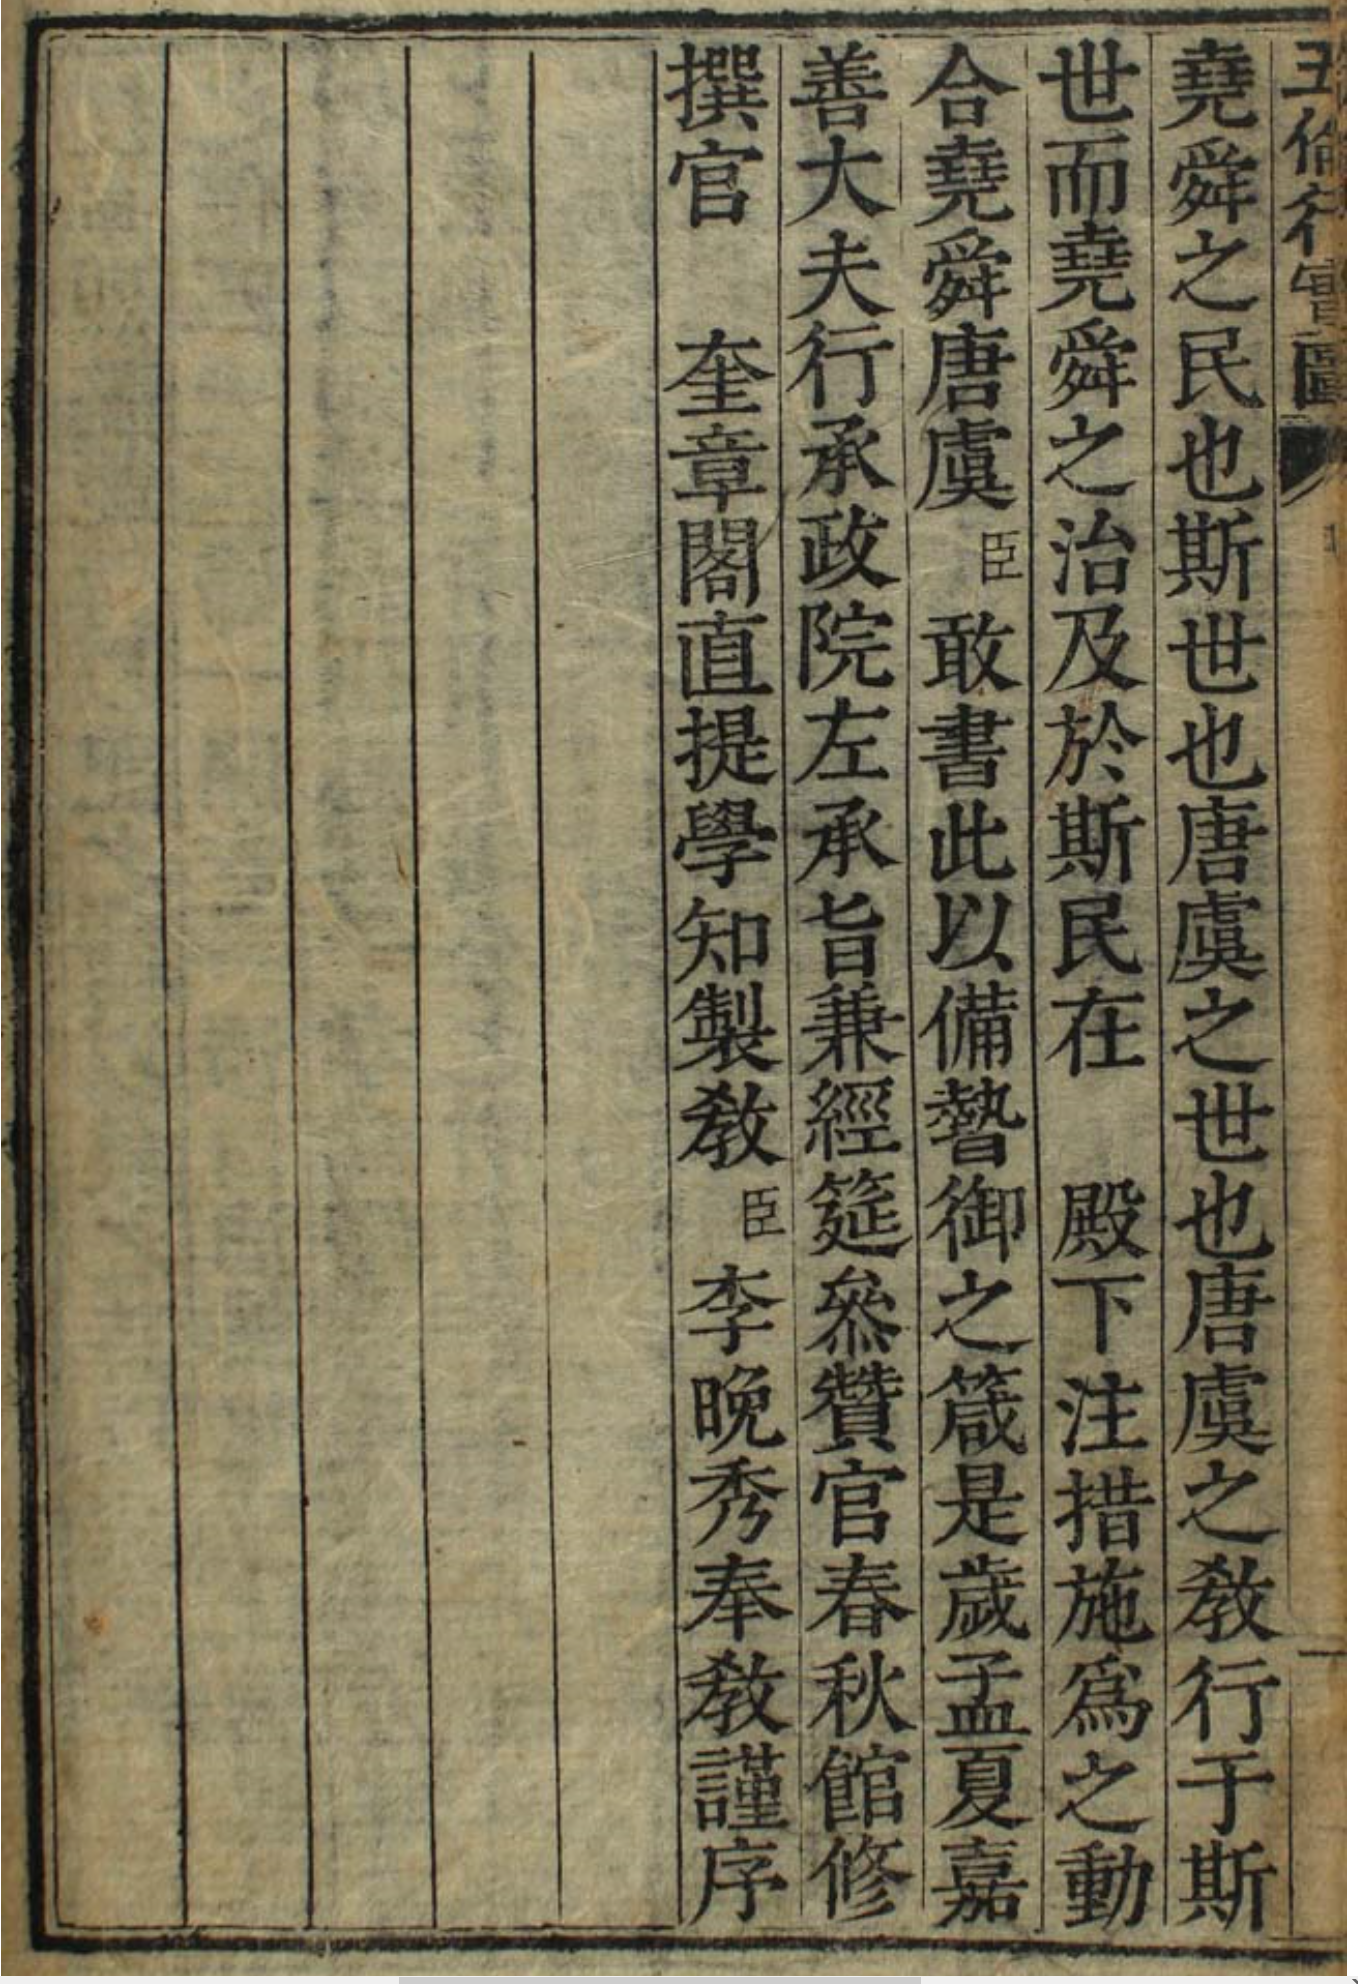 五倫行實圖
堯舜之民也斯世也唐虞之世也唐虞之敎行于斯
世而堯舜之治及於斯民在 殿下注措施爲之動
合堯舜唐虞臣敢書此以備暬御之箴是歲孟夏嘉
善大夫行承政院左承旨兼經筵叅贊官春秋館修
撰官 奎章閣直提學知製敎臣李晚秀奉敎謹序